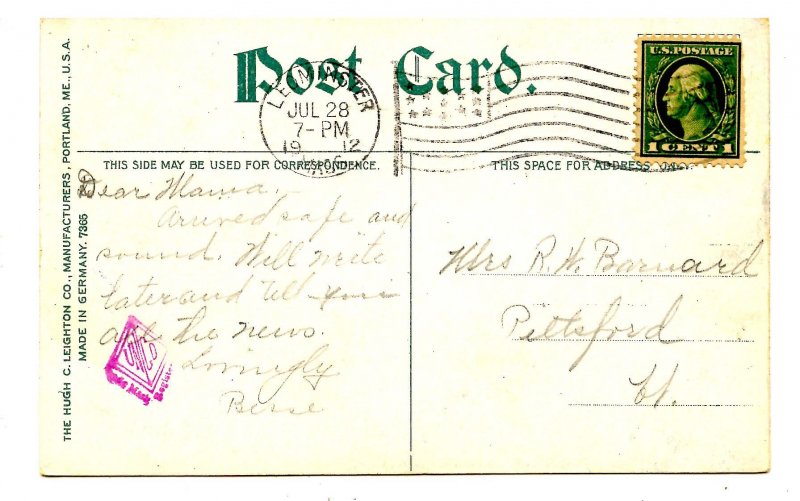 Post Card.
LEOMINSTER
JUL 28
7-PM
1912
MASS.
U.S. POSTAGE
1 CENT 1
THIS SIDE MAY BE USED FOR CORRESPONDENCE.
THIS SPACE FOR ADDRESS ONLY.
Dear Mama,-
Arrived safe and
sound. Will write
later and tell you
all the news.
Lovingly
Mrs R. W. Barnard
Pittsford
Vt.
THE HUGH C. LEIGHTON CO., MANUFACTURERS, PORTLAND, ME., U.S.A.
MADE IN GERMANY. 7365